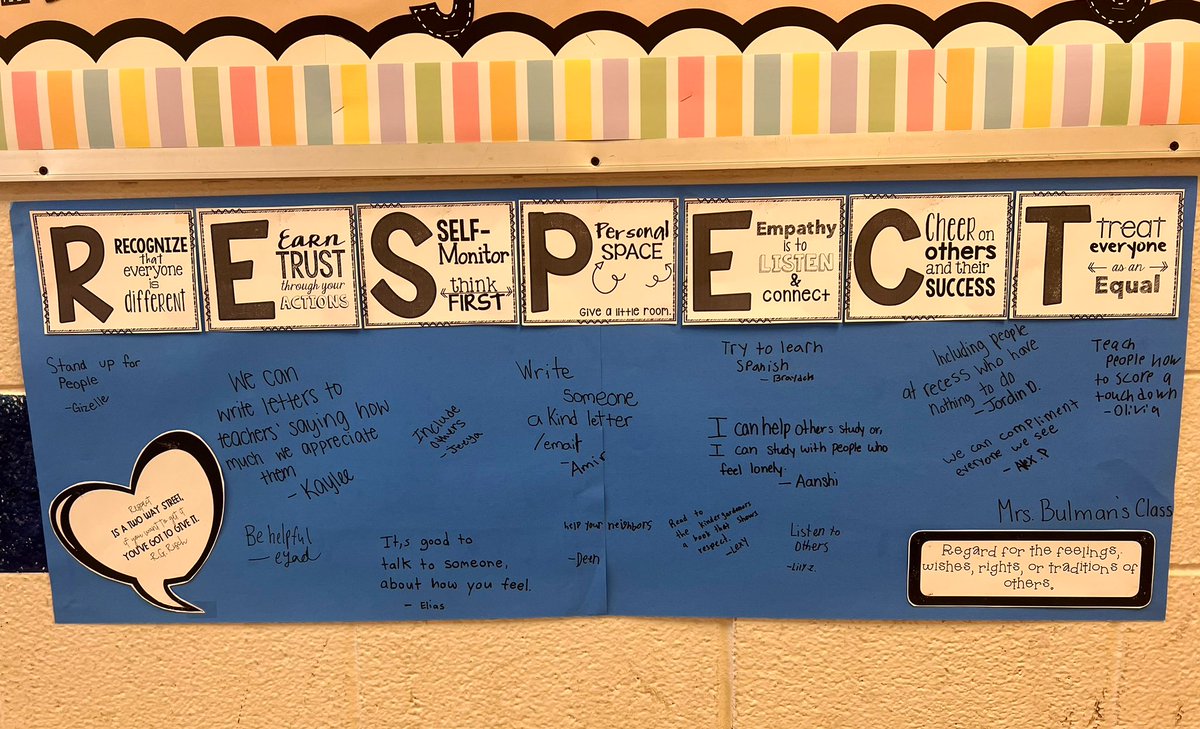 R
RECOGNIZE
that
everyone
is
different
E
Earn
TRUST
through your
ACTIONS
S
SELF-
Monitor
think
FIRST
P
Personal
SPACE
Give a little room.
E
Empathy
is to
LISTEN
&
connect
C
Cheer on
others
and their
SUCCESS
T
treat
everyone
as an
Equal
Stand up for
People
-Gizelle
We can
write letters to
teachers' saying how
much we appreciate
them
- Kaylee
Include
others
Write
someone
a Kind letter
/email
- Amir
Try to learn
Spanish
I can help others study or,
I can study with people who
feel lonely.
- Aanshi
Including people
at recess who have
nothing to do
- Jordin D.
Teach
People how
to score a
touchdown
- Olivia
we can compliment
everyone we see
- Alex P
Respect
IS A TWO WAY STREET,
if you want to get it
YOU'VE GOT TO GIVE IT.
R.G. Risch
Be helpful
- eyad
It,s good to
talk to someone,
about how you feel.
- Elias
help your neighbors
- Deen
Read to
the kindergardeners
a book that shows
respect.
- Lexy
Listen to
others
- Lily-Z.
Mrs. Bulman's Class
Regard for the feelings,
wishes, rights, or traditions of
others.